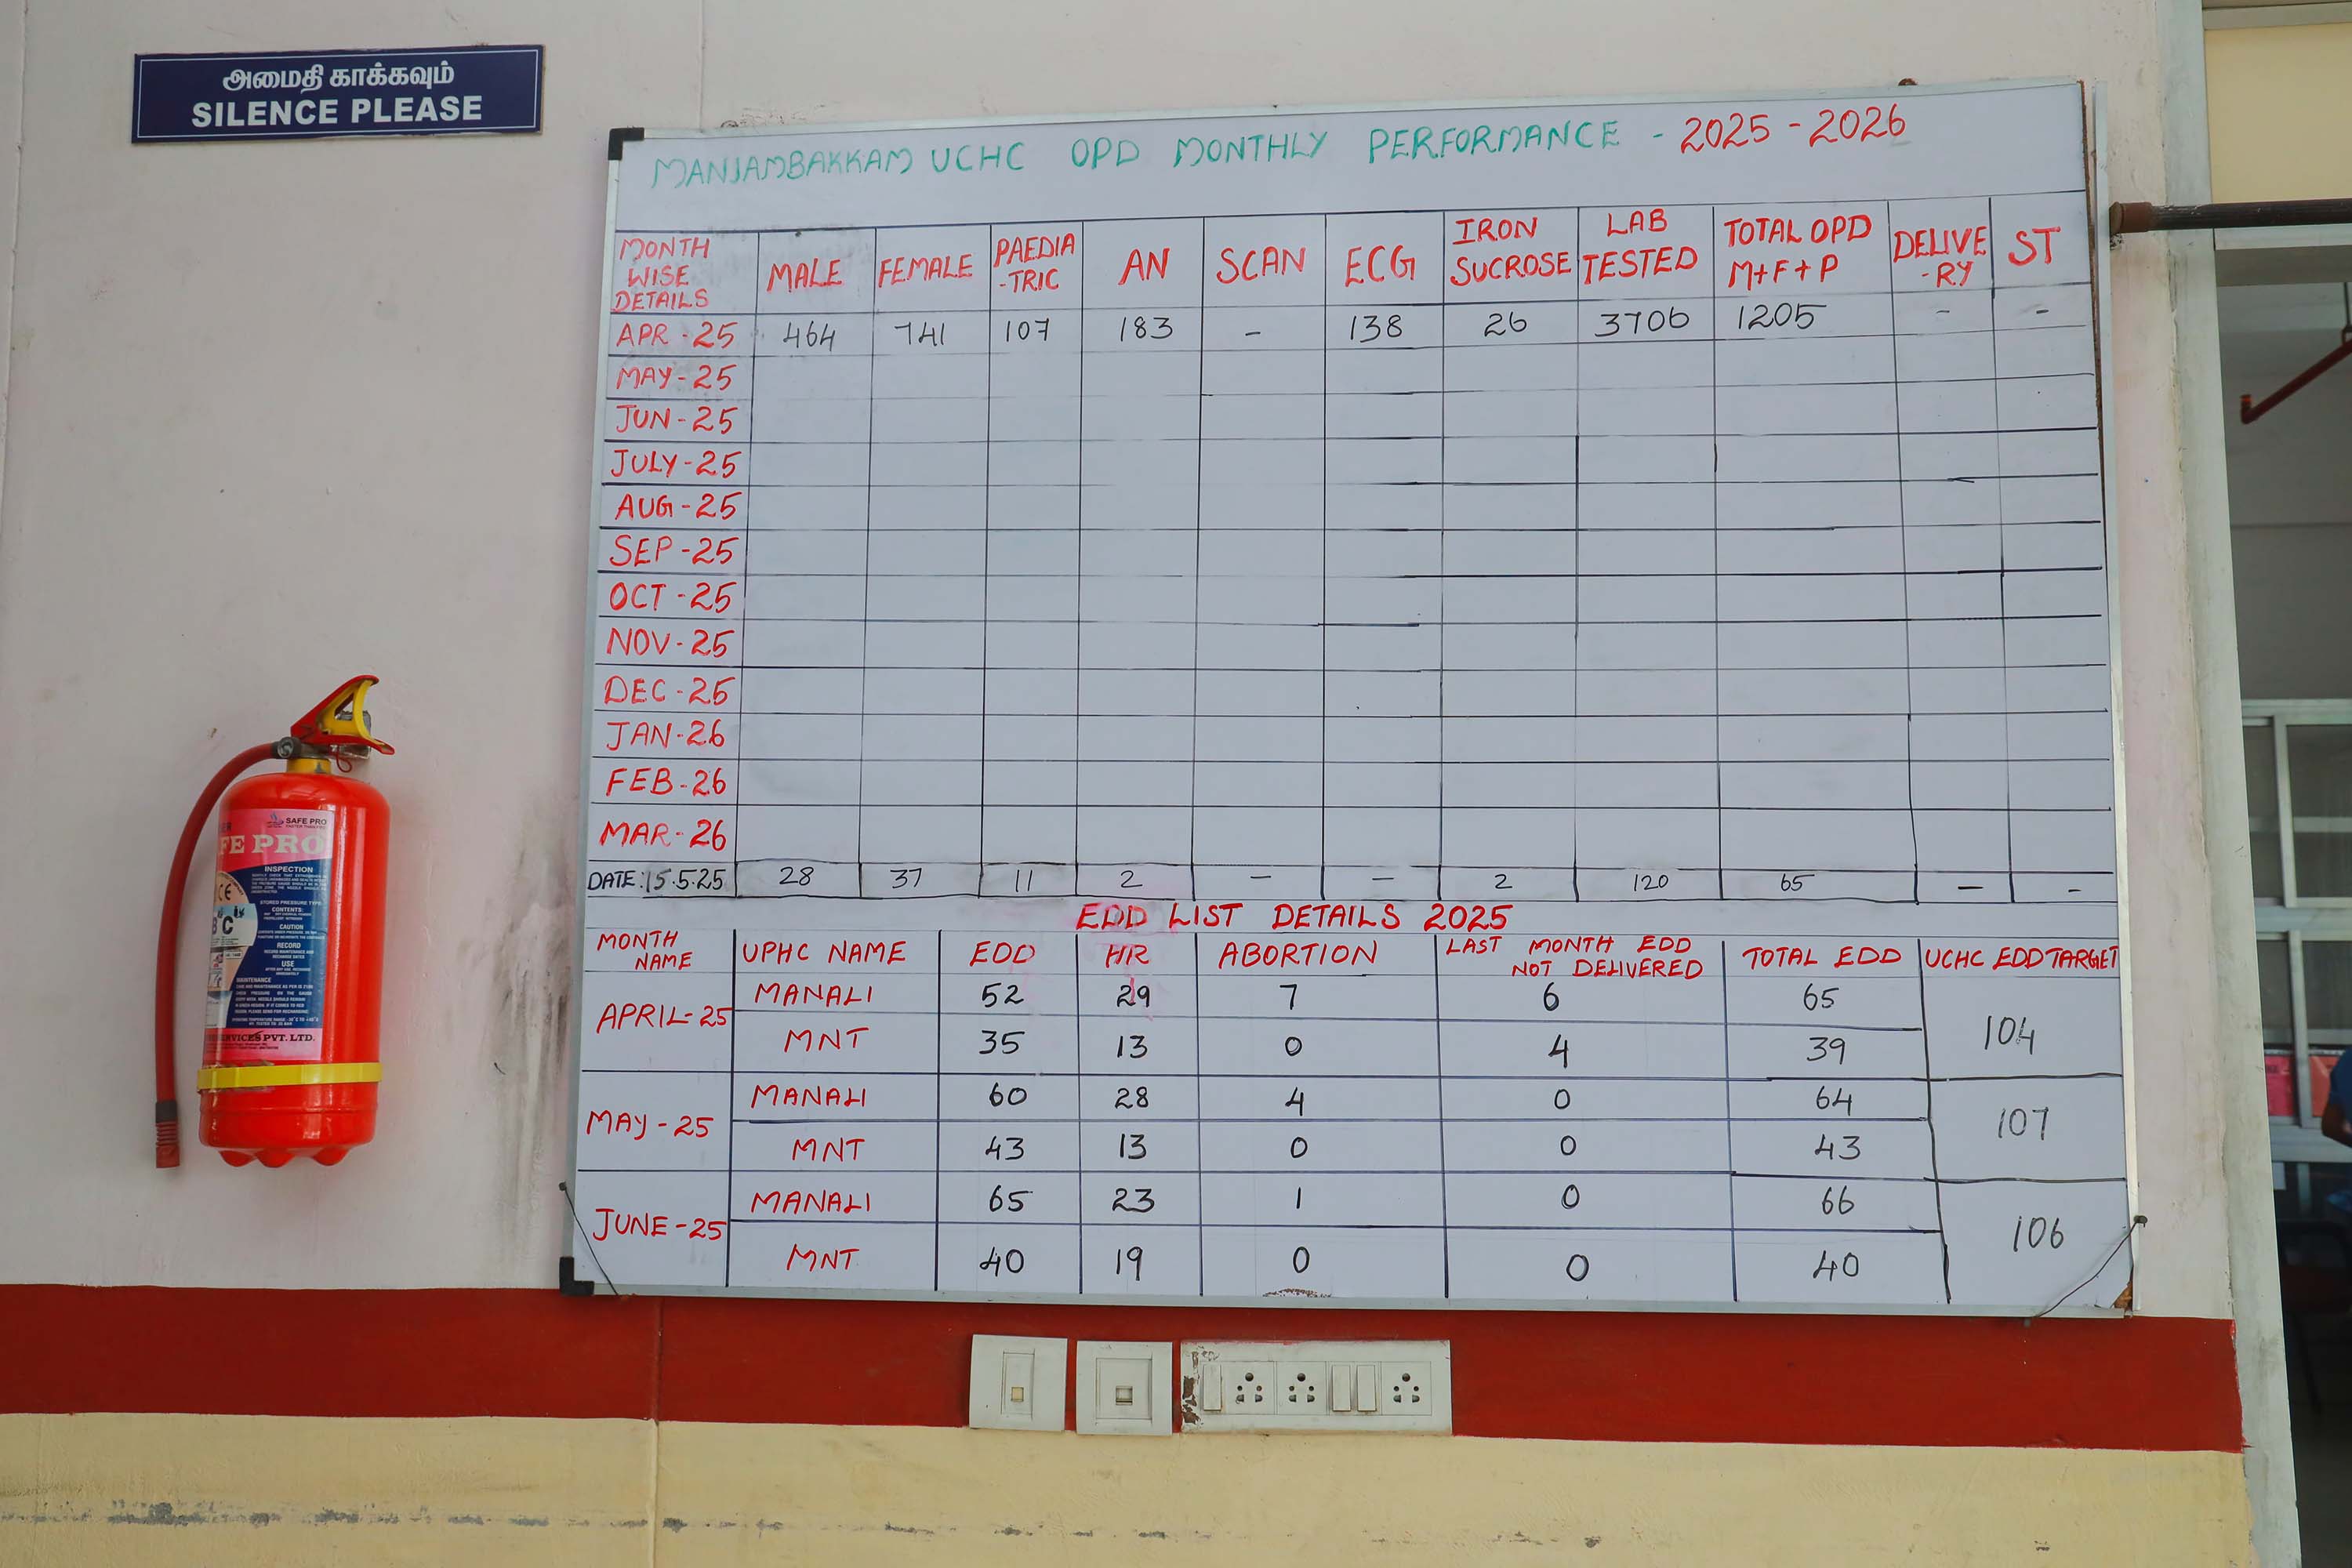 அமைதி காக்கவும்
SILENCE PLEASE
MANJAMBAKKAM UCHC OPD MONTHLY PERFORMANCE - 2025 - 2026
MONTH WISE DETAILS MALE FEMALE PAEDIA-TRIC AN SCAN ECG IRON SUCROSE LAB TESTED TOTAL OPD M+F+P DELIVE-RY ST
APR - 25 464 741 107 183 - 138 26 3706 1205 - -
MAY - 25
JUN - 25
JULY - 25
AUG - 25
SEP - 25
OCT - 25
NOV - 25
DEC - 25
JAN - 26
FEB - 26
MAR - 26
DATE: 15.5.25 28 37 11 2 - - 2 120 65 - -
EDD LIST DETAILS 2025
MONTH NAME UPHC NAME EDD HR ABORTION LAST MONTH EDD NOT DELIVERED TOTAL EDD UCHC EDD TARGET
APRIL-25 MANALI 52 29 7 6 65 104
MNT 35 13 0 4 39
MAY - 25 MANALI 60 28 4 0 64 107
MNT 43 13 0 0 43
JUNE - 25 MANALI 65 23 1 0 66 106
MNT 40 19 0 0 40
SAFE PRO
FE PRO
INSPECTION
STORED PRESSURE TYPE
CONTENTS:
CAUTION
RECORD
USE
MAINTENANCE
SERVICES PVT. LTD.